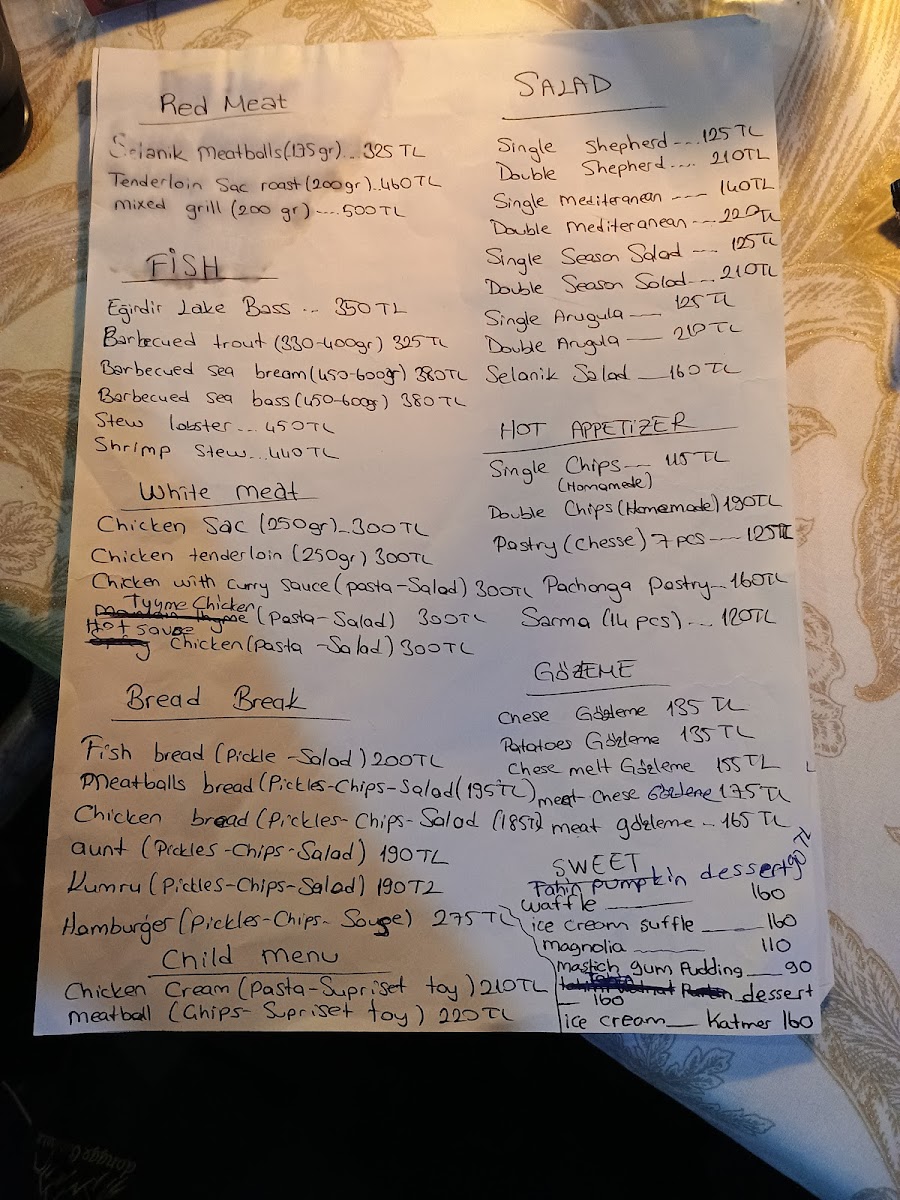 Red Meat
Selanik Meatballs(175gr)...325 TL
Tenderloin Sac roast(200gr)..460TL
mixed grill (200 gr)----.500TL
FiSH
Eğirdir Lake Bass ... 350 TL
Barbecued trout (330-400gr) 325TL
Barbecued sea bream(450-600gr) 380TL
Barbecued sea bass(450-600gr) 380TL
Stew lobster... 450TL
Shrimp Stew...440TL
White meat
Chicken Sac (250gr)..300TL
Chicken tenderloin (250gr) 300TL
Chicken with curry sauce(pasta-Salad) 300TL
Tyyme Chicken (Pasta-Salad) 300TL
Hot sause Chicken(pasta -Salad) 300TL
Bread Break
Fish bread (Pickle -Salad) 200TL
Meatballs bread(Pickles-Chips-Salad(195TL)
Chicken bread (Pickles-Chips-Salad (185TL
aunt (Pickles-Chips-Salad) 190TL
Kumru (Pickles-Chips-Salad) 190TL
Hamburger (Pickles-Chips- Souse) 275TL
Child menu
Chicken Cream (Pasta-Supriset toy) 210TL
meatball (Chips- Supriset toy) 220TL
SALAD
Single Shepherd ---.125TL
Double Shepherd.... 210TL
Single mediteranean --- 140TL
Double mediteranean --- 220TL
Single Season Salad --- 125TL
Double Season Salad... 210TL
Single Arugula --- 125TL
Double Arugula --- 210TL
Selanik Salad __160TL
HOT APPETiZER
Single Chips--- 115TL
(Homamede)
Double Chips(Homemade) 190TL
Pastry (Chesse) 7 pcs ---- 125TL
Pachonga pastry... 160TL
Sarma (14 pcs) ... 120TL
GÖZEME
Chese Gözleme 135 TL
Patatoes Gözleme 135TL
Chese melt Gözleme 155TL
meat chese Gözleme 175TL
meat gözleme .. 165 TL
SWEET
Tahin pumpkin dessert 90 TL
Waffle ____ 160
ice cream suffle ____ 160
magnolia ____ 110
mastich gum Pudding ___ 90
dessert
160
ice cream__ Katmer 160